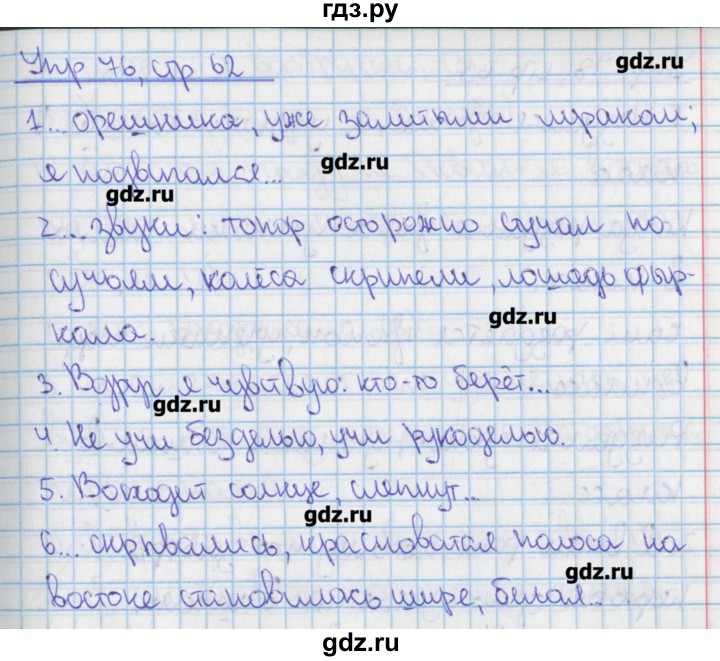 гдз.ру
Упр 76, стр 62
gdz.ru
1... орешника, уже залитыми мраком;
gdz.ru
я подвигался...
gdz.ru
2... звуки: топор осторожно стучал по
сучьям, колёса скрипели, лошадь фыр-
gdz.ru
кала.
3. Вдруг я чувствую: кто-то берёт...
gdz.ru
4. Не учи безделью, учи рукоделью.
5. Восходит солнце, слепнут...
gdz.ru
6... скрывались, красноватая полоса на
gdz.ru
востоке становилась шире, белая...
gdz.ru